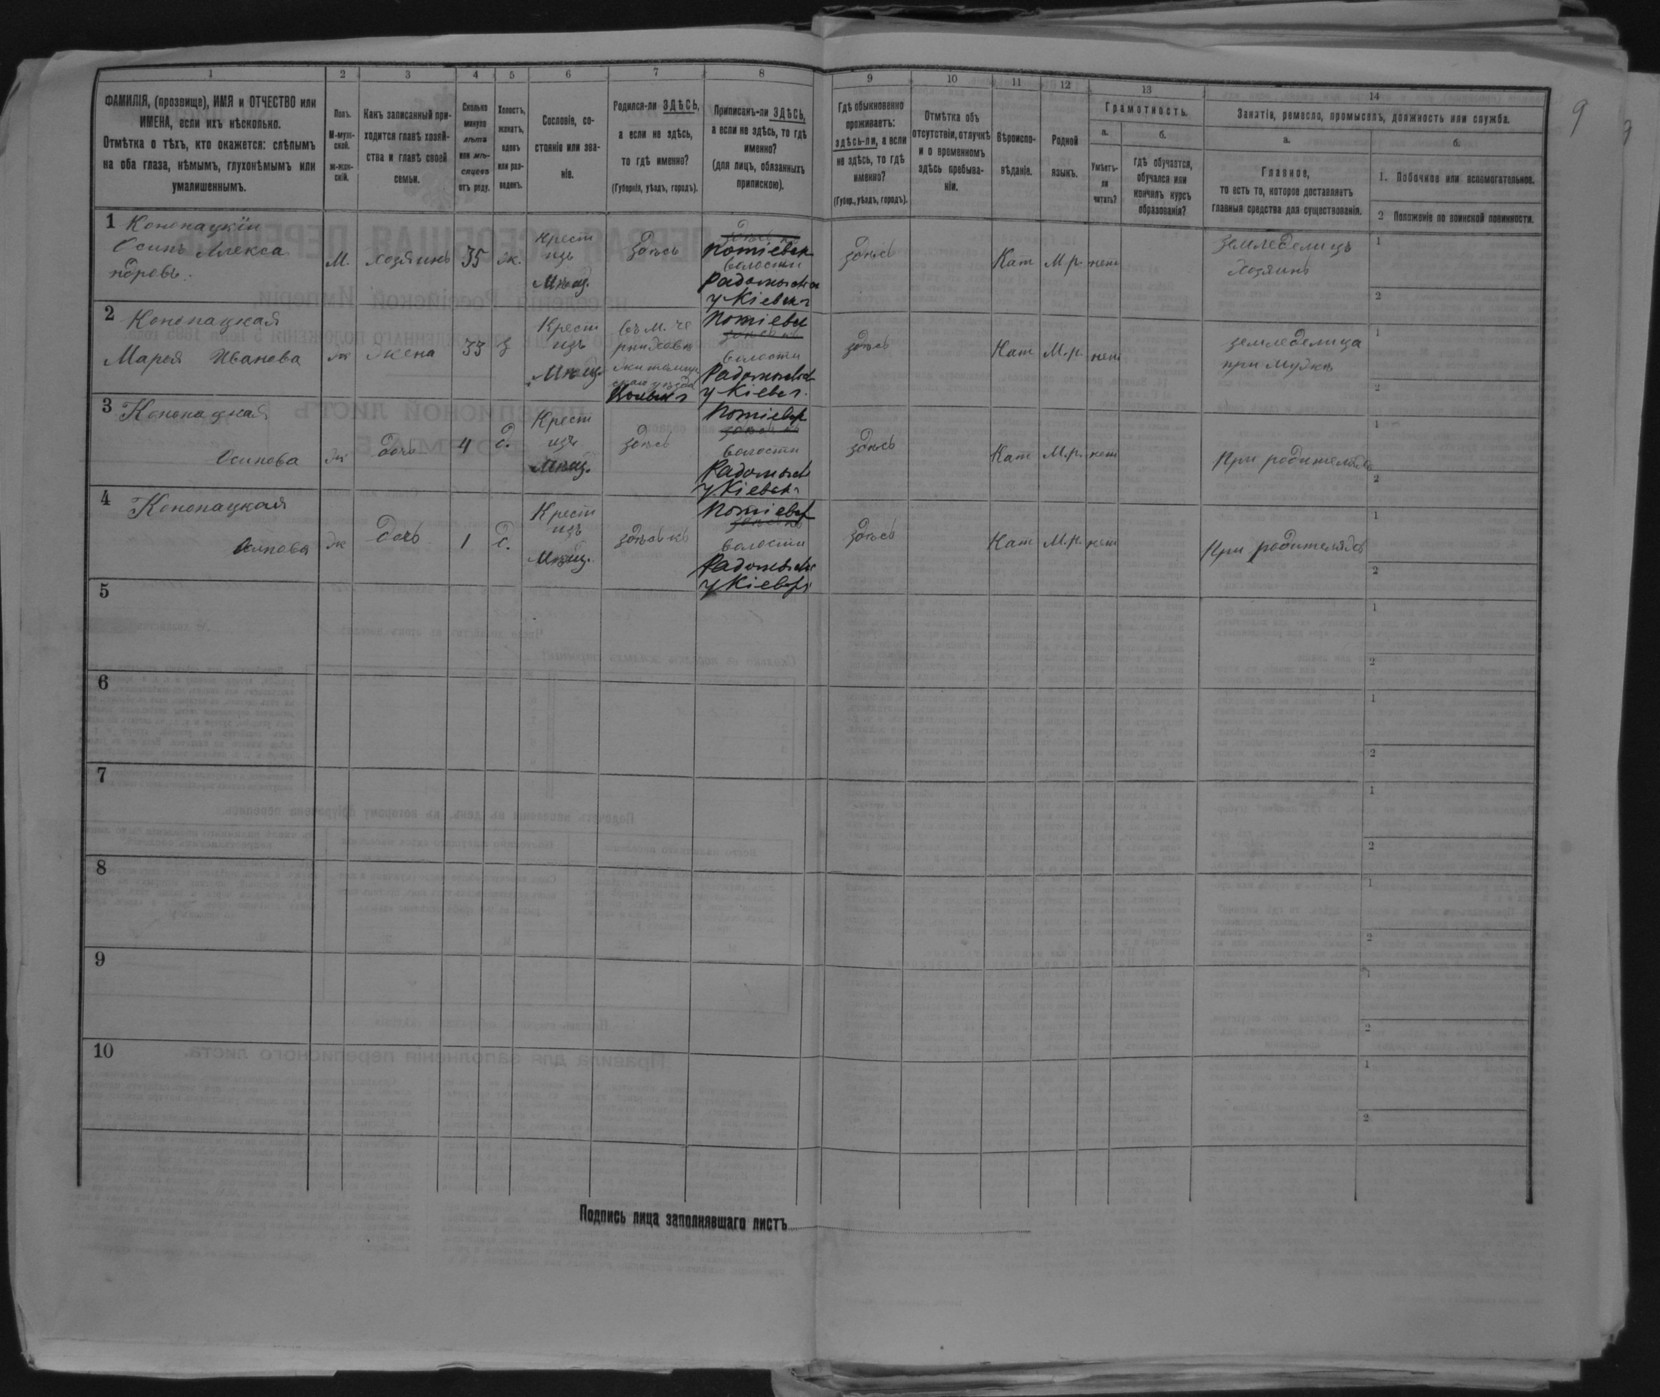 9
1 2 3 4 5 6 7 8 9 10 11 12 13 14
ФАМИЛІЯ, (прозвище), ИМЯ и ОТЧЕСТВО или
ИМЕНА, если ихъ нѣсколько.
Отмѣтка о тѣхъ, кто окажется: слѣпымъ
на оба глаза, нѣмымъ, глухонѣмымъ или
умалишеннымъ.
Полъ.
М-муж-
ской.
Ж-жен-
скій.
Какъ записанный при-
ходится главѣ хозяй-
ства и главѣ своей
семьи.
Сколько
минуло
лѣтъ
или мѣ-
сяцевъ
отъ роду.
Холостъ,
женатъ,
вдовъ
или раз-
веденъ.
Сословіе, со-
стояніе или зва-
ніе.
Родился-ли ЗДѢСЬ,
а если не здѣсь,
то гдѣ именно?
(Губернія, уѣздъ, городъ).
Приписанъ-ли ЗДѢСЬ,
а если не здѣсь, то гдѣ
именно?
(для лицъ, обязанныхъ
припискою).
Гдѣ обыкновенно
проживаетъ:
здѣсь-ли, а если
не здѣсь, то гдѣ
именно?
(Губер., уѣздъ, городъ).
Отмѣтка объ
отсутствіи, отлучкѣ
и о временномъ
здѣсь пребыва-
ніи.
Вѣроиспо-
вѣданіе.
Родной
языкъ.
Грамотность.
а.
Умѣетъ-
ли
читать?
б.
гдѣ обучается,
обучался или
кончилъ курсъ
образованія?
Занятіе, ремесло, промыселъ, должность или служба.
а.
Главное,
то есть то, которое доставляетъ
главныя средства для существованія.
б.
1. Побочное или вспомогательное.
2 Положеніе по воинской повинности.
1 Конопацкій
Осипъ Алекса
ндровъ.
М. хозяинъ 35 ж.
Крест
изъ
Мѣщ.
здѣсь
Потіевск
волости
Радомысльск
у Кіевск г
здѣсь
Кат М.р. нет
земледелецъ
хозяинъ
1
2
2 Конопацкая
Марья Иванова
ж жена 33 з
Крест
изъ
Мѣщ
въ М. Че
рняхов
житомир
скаго уезда
Волын г
Потіевск
волости
Радомысльск
у Кіевск г.
здѣсь
Кат М.р. нет
земледелица
при мужѣ
1
2
3 Конопацкая
Осипова
ж дочь 4 д.
Крест
изъ
Мѣщ.
здѣсь
Потіевск
волости
Радомысльск
у Кіевск г
здѣсь
Кат М.р. нет
При родителяхъ
1
2
4 Конопацкая
Осипова
ж дочь 1 д.
Крест
изъ
Мѣщ.
здѣсь
Потіевск
волости
Радомысльск
у Кіевск г
здѣсь
Кат М.р. нет
При родителяхъ
1
2
5
1
2
6
1
2
7
1
2
8
1
2
9
1
2
10
1
2
Подпись лица заполнявшаго листъ